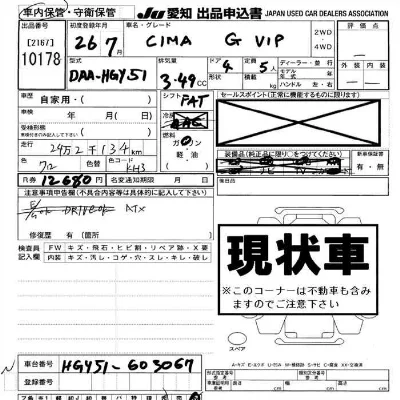 車内保管・守衛保管
JU 愛知 出品申込書 JAPAN USED CAR DEALERS ASSOCIATION
出品番号
[2167]
10178
初度登録年月
26年7月
車名・グレード
CIMA G VIP
2WD
4WD
評価点
型式
DAA-HGY51
排気量
3.49cc
ドア
4
定員
5人
ディーラー・並行
モデル年式 年
ハンドル 左・右
外装
車歴
自家用・
シフト
FAT
セールスポイント(正常に機能するものに限ります)
車検
年 月
冷房
走行
24万2千134km
燃料
ガソリン
軽油
装備品(純正品に限り○をつけてください)
新車保証書
有・無
色
色替
色コード
KH3
R券
12680円
名変通知期限 月 日
注意事項申告欄(不具合内容等は具体的に記入)
DRIVEok ATX
修復歴 有(箇所
検査員記入欄
FW キズ・飛石・ヒビ割・リペア跡・X要
内装 キズ・汚レ・コゲ・穴・スレ・キレ・破レ
現状車
※このコーナーは不動車も含みますのでご注意下さい
スペア
車台番号
HGY51-603067
登録番号